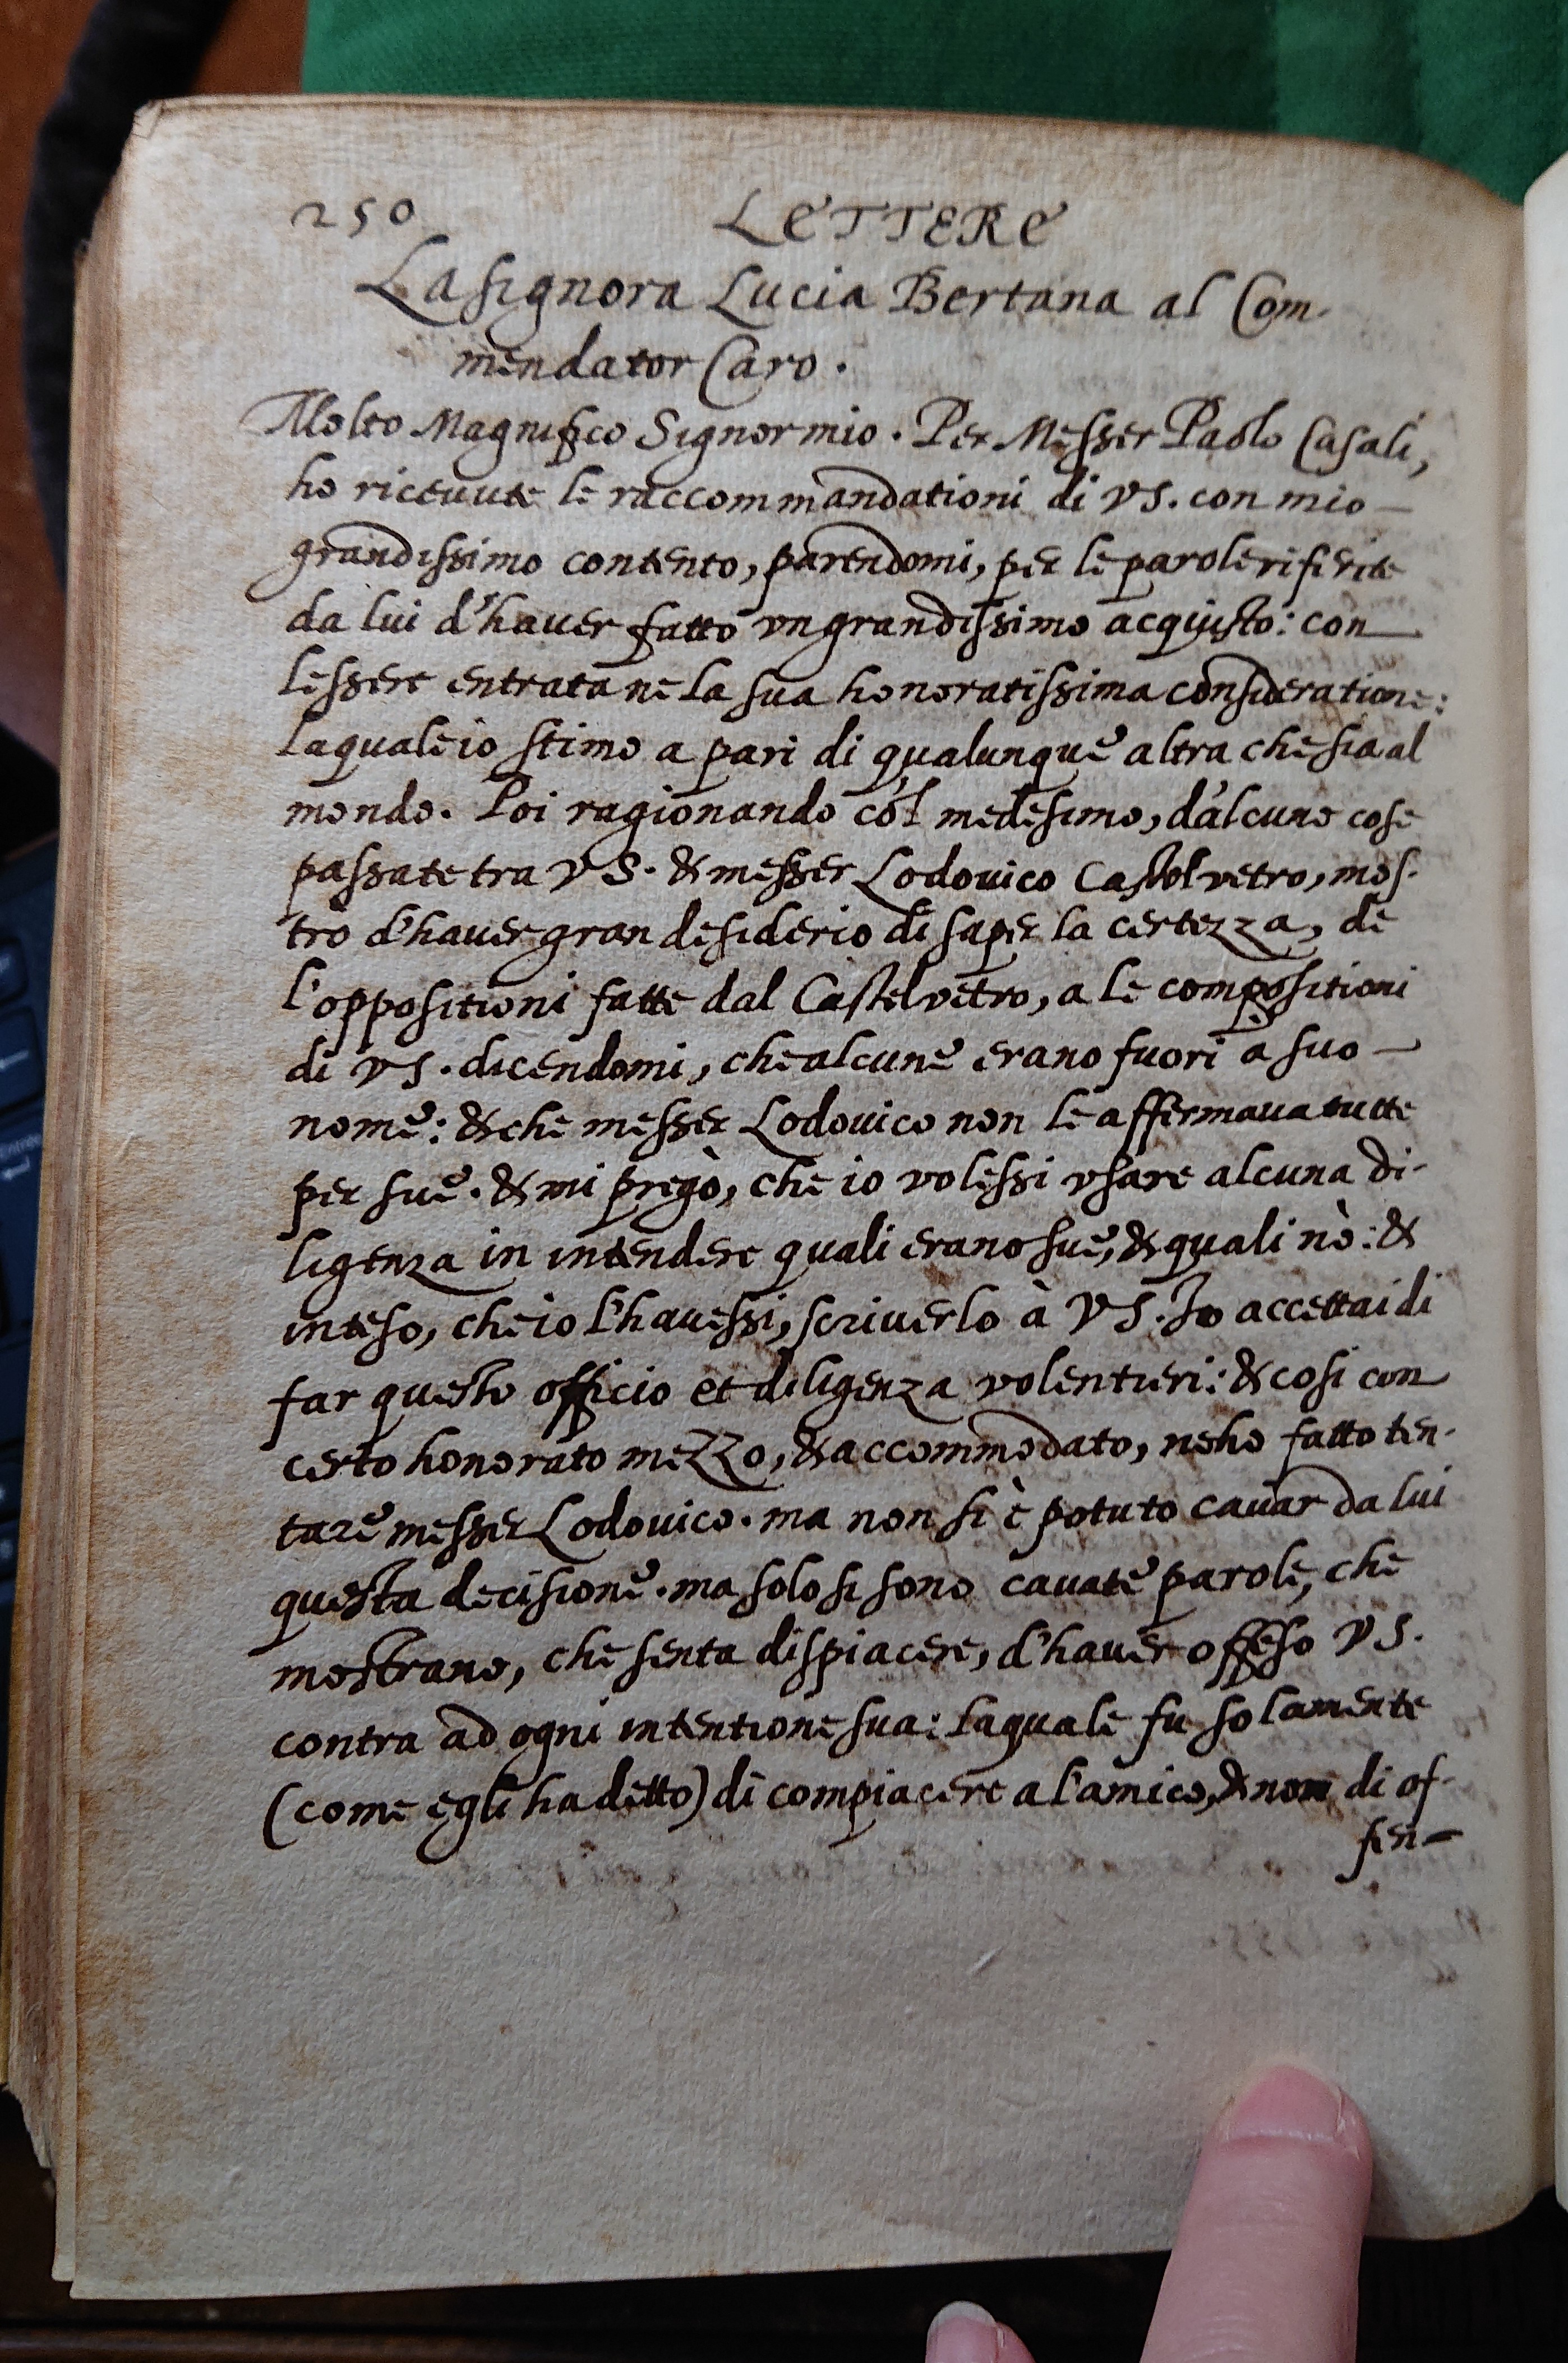 250 LETTERE
La signora Lucia Bertana al Com-
mendator Caro.
Molto Magnifico Signor mio. Per Messer Paolo Casali,
ho riceuute le raccommandationi di VS. con mio
grandissimo contento, parendomi, per le parole riferite
da lui d'hauer fatto vn grandissimo acquisto: con
lessere entrata ne la sua honoratissima consideratione:
laquale io stimo a pari di qualunque altra che sia al
mondo. Poi ragionando col medesimo, d'alcune cose
passate tra VS. & messer Lodouico Castelvetro, mos-
trò d'hauer gran desiderio di saper la certezza, de
l'oppositioni fatte dal Castelvetro, a le compositioni
di VS. dicendomi, che alcune erano fuori a suo
nome: & che messer Lodouico non le affermaua tutte
per sue. & mi pregò, che io volessi vsare alcuna di-
ligenza in intendere quali erano sue, & quali nò: &
inteso, che io l'hauessi, scriuerlo à VS. Io accettai di
far questo officio et diligenza volentieri: & cosi con
certo honorato mezzo, & accommodato, ne ho fatto ten-
tare messer Lodouico. ma non si è potuto cauar da lui
questa decisione. ma solo si sono cauate parole, che
mostrano, che senta dispiacere, d'hauer offeso VS.
contra ad ogni intentione sua: laquale fu solamente
(come egli ha detto) di compiacere a l'amico, & non di of-
fen-